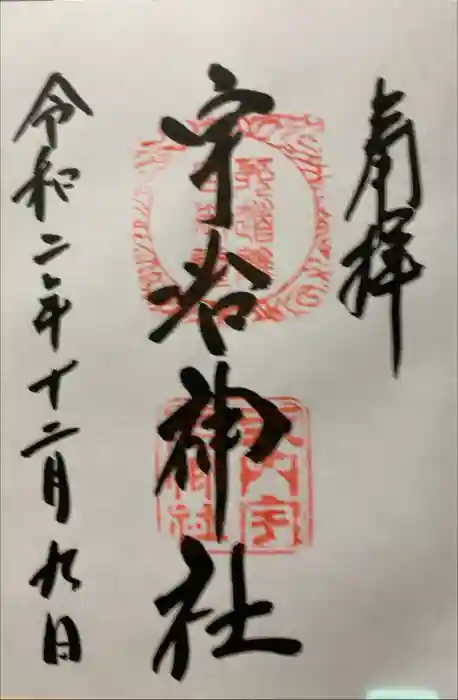 奉拝
宇治神社
令和二年十二月九日
式内宇
治神社